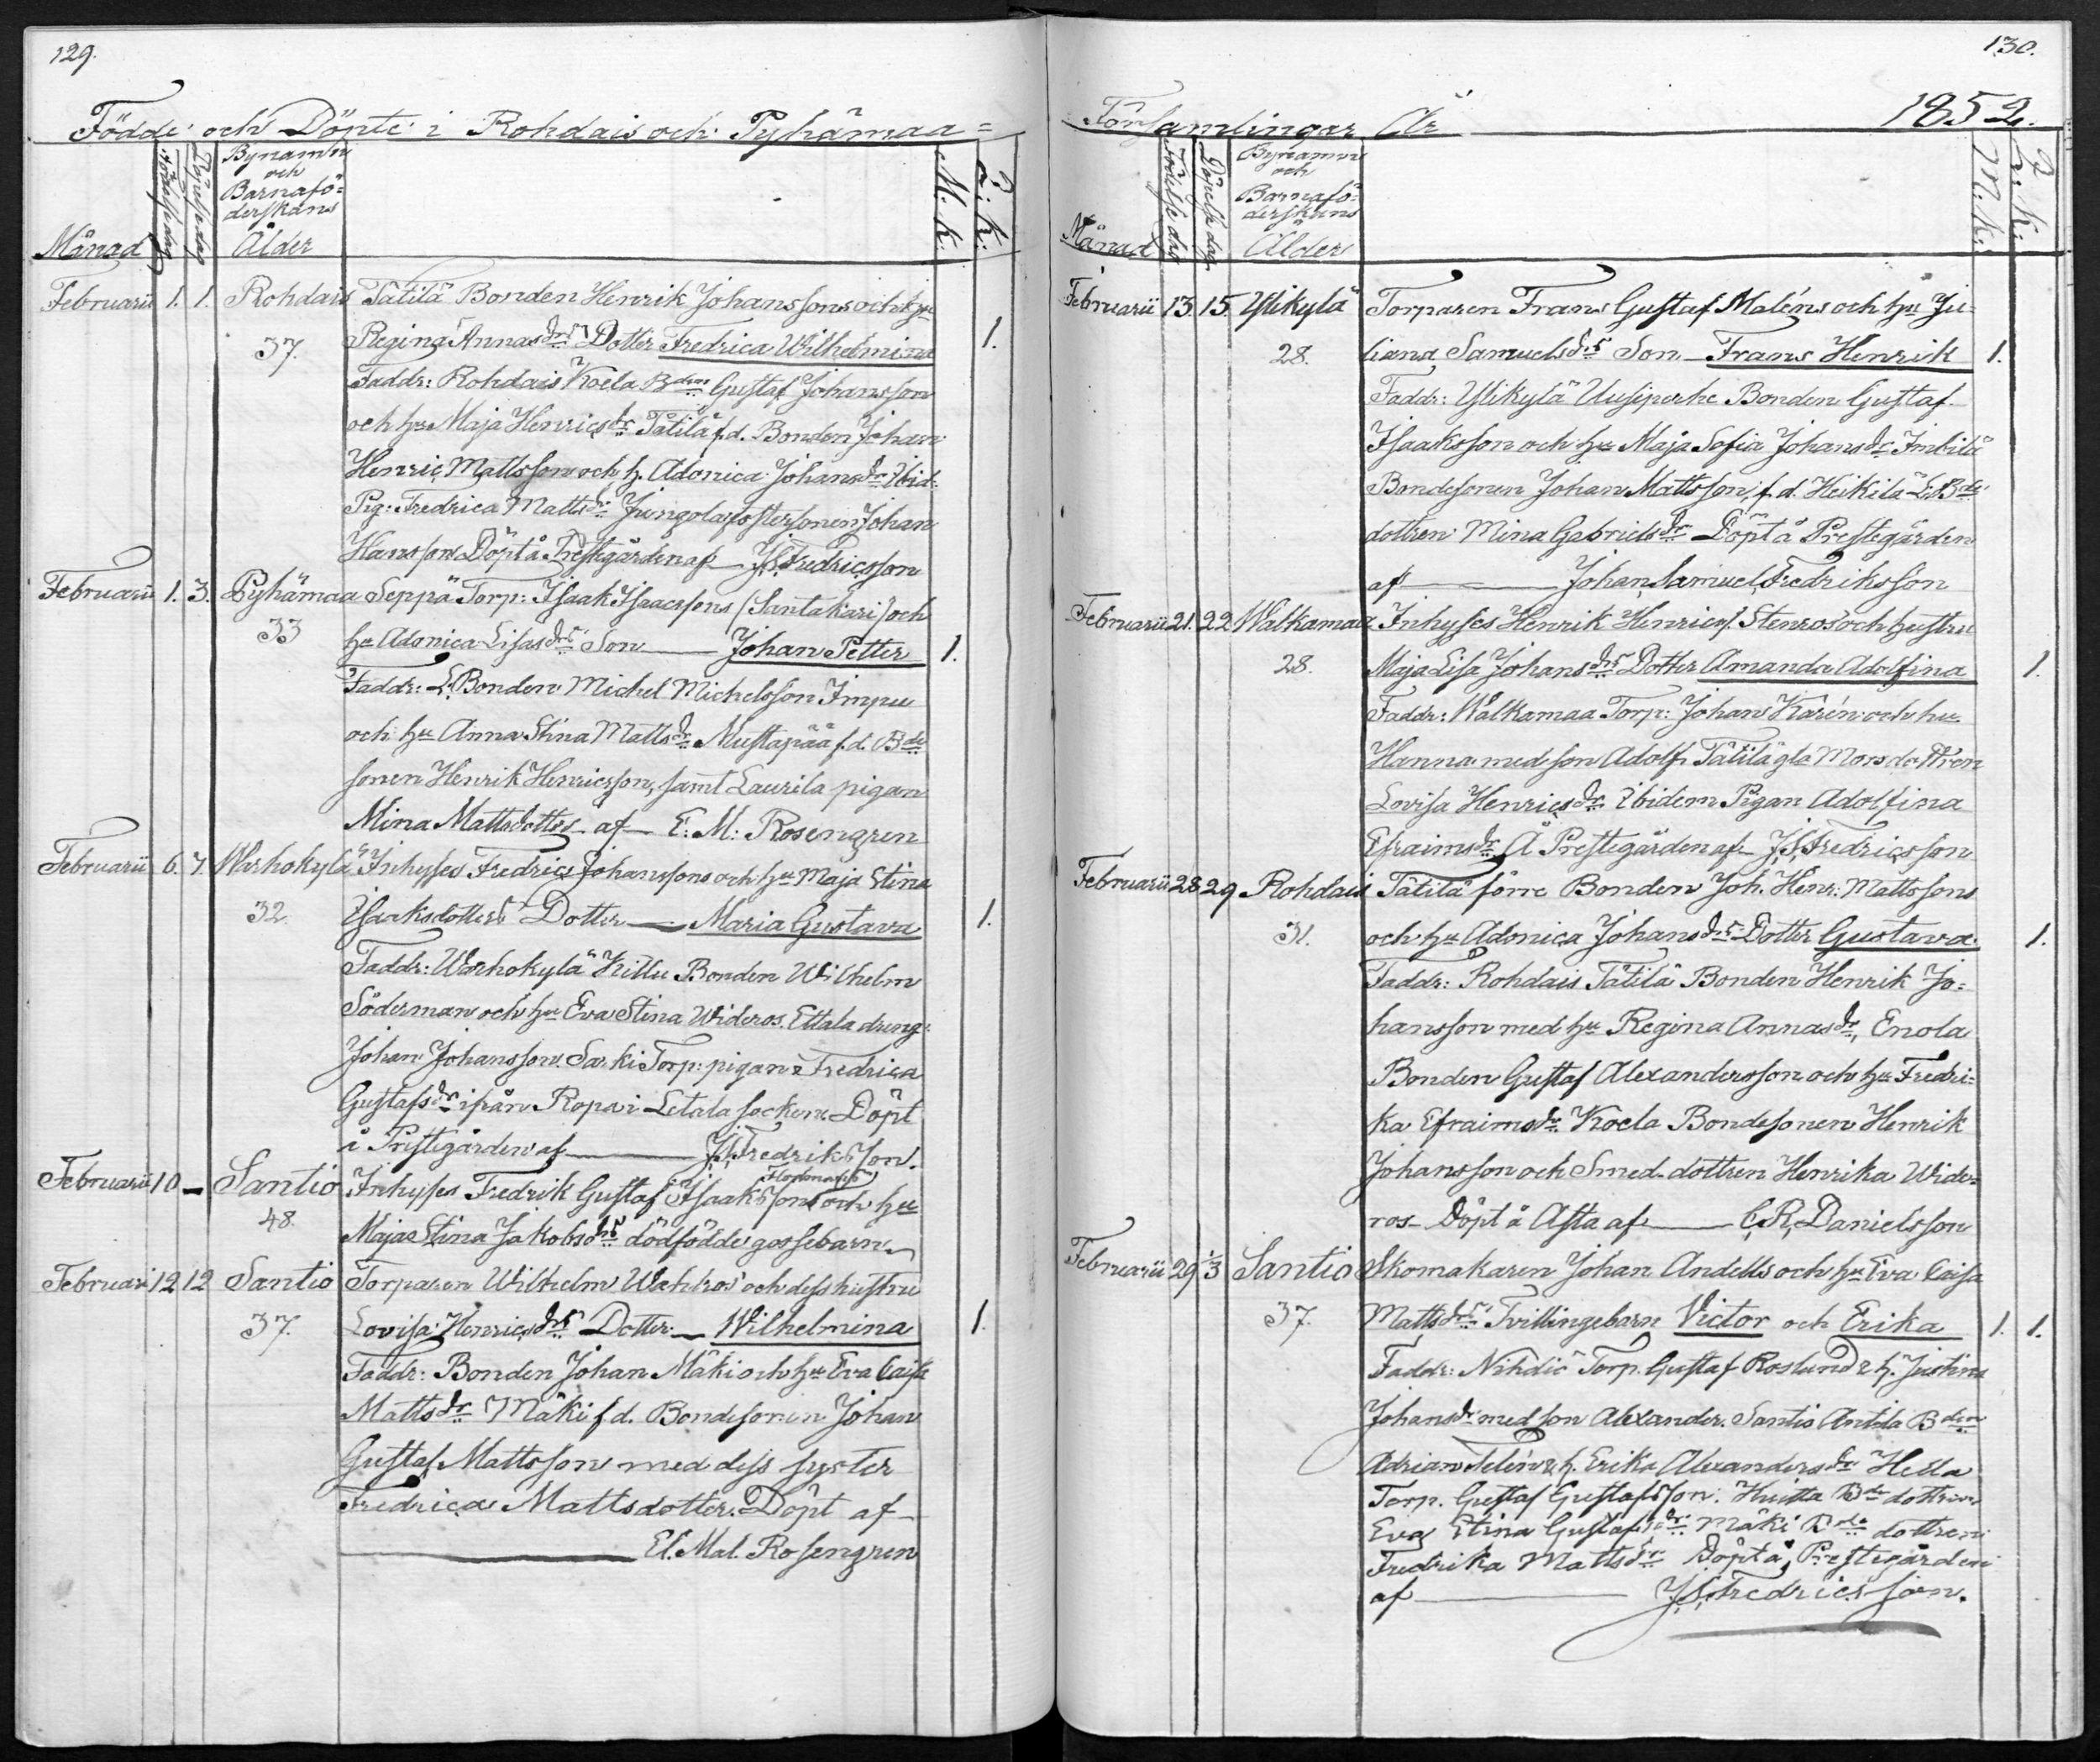 129.
Födde och Döpte i Rohdais och Pyhämaa=
Månad
Födelsedag
Döpelsedag
Bynamn
och
Barnafö=
derskans
Ålder
M. K.
Q. K.
Februarii 1. 1. Rohdais Tätilä Bonden Henrik Johanssons och hu
37. Regina Annasdrs Dotter Fredrica Wilhelmina 1.
Faddr: Rohdais Koela Bden Gustaf Johansson
och hu Maja Henricsdr Tätilä f.d. Bonden Johan
Henric Mattsson och h. Adonica Johansdr Ibid:
Pig: Fredrica Mattsdr Jungola fostersonen Johan
Hansson Döpt å Prestegården af J.S. Fredricsson
Februarii 1. 3. Pyhämaa Seppä Torp: Isaak Isaacssons (Santakari) och
33 hu Adonica Lisasdrs Son Johan Petter 1.
Faddr: L. Bonden Michel Michelsson Impu
och hu Anna Stina Mattsdr Mustapää f.d. Bde
sonen Henrik Henricsson, samt Laurila pigan
Mina Mattsdotter af E: M: Rosengren
Februarii 6. 7. Warhokylä Inhyses Fredric Johanssons och hu Maja Stina
32. Isaksdotters Dotter Maria Gustava 1.
Faddr: Warhokylä Killu Bonden Wilhelm
Söderman och hu Eva Stina Wideros. Ettala dreng:
Johan Johansson. Sarki Torp: pigan Fredrica
Gustafsdr ifrån Ropa i Letala socken. Döpt
å Prestegården af J.S. Fredriksson.
Februarii 10 – Santio Inhyses Fredrik Gustaf Isaakssons och hu
48. Maja Stina Jakobsdrs dödfödde gossebarn
Februari 12 12 Santio Torparen Wilhelm Wahlros och dess hustru
37. Lovisa Henricsdrs Dotter Wilhelmina 1.
Faddr: Bonden Johan Mäki och hu Eva Caisa
Mattsdr Mäki f d. Bondesonen Johan
Gustaf Mattsson med dess syster
Fredrica Mattsdotter. Döpt af
El. Mal. Rosengren
130.
Församlingar År 1852.
Månad
Födelsedag
Döpelsedag
Bynamn
och
Barnafö=
derskans
Ålder
M. K.
Q. K.
Februarii 13. 15. Ylikylä Torparen Frans Gustaf Maléns och hu Ju=
28. liana Samuelsdrs Son Frans Henrik 1.
Faddr: Ylikylä Uusiperhe Bonden Gustaf
Isaaksson och hu Maja Sofia Johansdr Imbilä
Bondesonen Johan Mattsson, f.d. Heikilä L. Bde
dottren Mina Gabrielsdr Döpt å Prestegården
af Johan Samuel Fredriksson
Februarii 21. 22 Walkamaa Inhyses Henrik Henricss. Stenros och hustru
28. Maja Lisa Johansdrs Dotter Amanda Adolfina 1.
Faddr: Walkamaa Torp: Johan Karén och hu
Hanna med son Adolf. Tätilä gla Mors dottren
Lovisa Henricsdr Ibidem Pigan Adolfina
Efraimsdr Å Prestegården af J.S. Fredricsson
Februarii 28 29 Rohdais Tätilä förre Bonden Joh. Henr: Mattssons
31. och hu Adonica Johansdrs Dotter Gustava 1.
Faddr: Rohdais Tätilä Bonden Henrik Jo=
hansson med hu Regina Annasdr, Enola
Bonden Gustaf Alexandersson och hu Fredri=
ka Efraimsdr. Koela Bondesonen Henrik
Johansson och Smed-dottren Henrika Wide=
ros Döpt å Asta af C.R. Danielsson
Februarii 29 1/3 Santio Skomakaren Johan Andells och hu Eva Caisa
37. Mattsdrs Tvillingebarn Victor och Erika 1. 1.
Faddr: Nihdiö Torp. Gustaf Roslund & h. Justina
Johansdr med son Alexander. Santio Antila Bden
Adrian Telén & h. Erika Alexandersdr Hella
Torp. Gustaf Gustafsson. Hutta Bde dottren
Eva Stina Gustafsdr. Mäki Bde dottren
Fredrika Mattsdr Döpt å Prestegården
af J.S. Fredricsson.